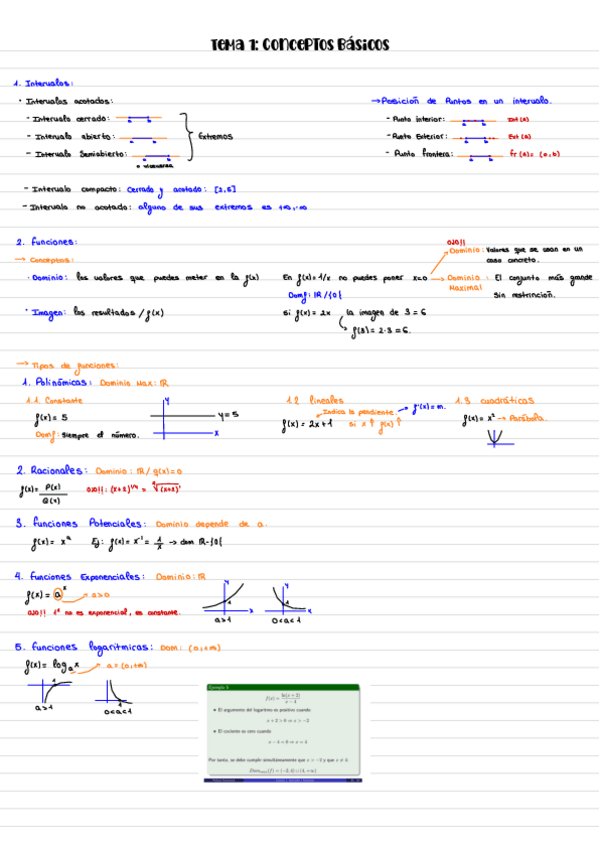 Tema 1: Conceptos Básicos
1. Intervalos:
· Intervalos acotados:
- Intervalo cerrado:
- Intervalo abierto:
- Intervalo Semiabierto:
Extremos
→ Posición de Puntos en un intervalo.
- Punto interior: Int (A)
- Punto Exterior: Ext (A)
- Punto frontera: Fr (A) = {a, b}
- Intervalo compacto: Cerrado y acotado: [2,5]
- Intervalo no acotado: alguno de sus extremos es +∞, -∞
2. Funciones:
→ Conceptos:
· Dominio: los valores que puedes meter en la f(x)
En f(x) = 1/x no puedes poner x=0
Domf: IR/{0}
OJO!!
Dominio: Valores que se usan en un
caso concreto.
Dominio Maximal: El conjunto más grande
Sin restricción.
· Imagen: los resultados / f(x)
si f(x) = 2x la imagen de 3 = 6
f(3) = 2·3 = 6.
→ Tipos de funciones:
1. Polinómicas: Dominio Max: IR
1.1. Constante
f(x) = 5
Domf: Siempre el número.
y
y = 5
x
1.2 lineales
Indica la pendiente. → f'(x) = m.
f(x) = 2x + 1 si x ↑ f(x) ↑
1.3 cuadráticas
f(x) = x² → Parábola.
2. Racionales: Dominio: IR / q(x) = 0
f(x) = P(x) / Q(x)
3. Funciones Potenciales: Dominio depende de a.
f(x) = xᵃ Ej: f(x) = x⁻¹ = 1/x → dom IR-{0}
4. Funciones Exponenciales: Dominio: IR
f(x) = aˣ → a>0
OJO!! 1ˣ no es exponencial, es constante.
y
1
x
a>1
y
1
x
0<a<1
5. Funciones logarítmicas: Dom: (0,+∞)
f(x) = logₐ x → a = (0,+∞)
a>1
0<a<1
Ejemplo 5
f(x) = ln(x + 2) / x − 4
El argumento del logaritmo es positivo cuando
x + 2 > 0 ⇒ x > −2
El cociente es cero cuando
x − 4 = 0 ⇒ x = 4
Por tanto, se debe cumplir simultáneamente que x > −2 y que x ≠ 4.